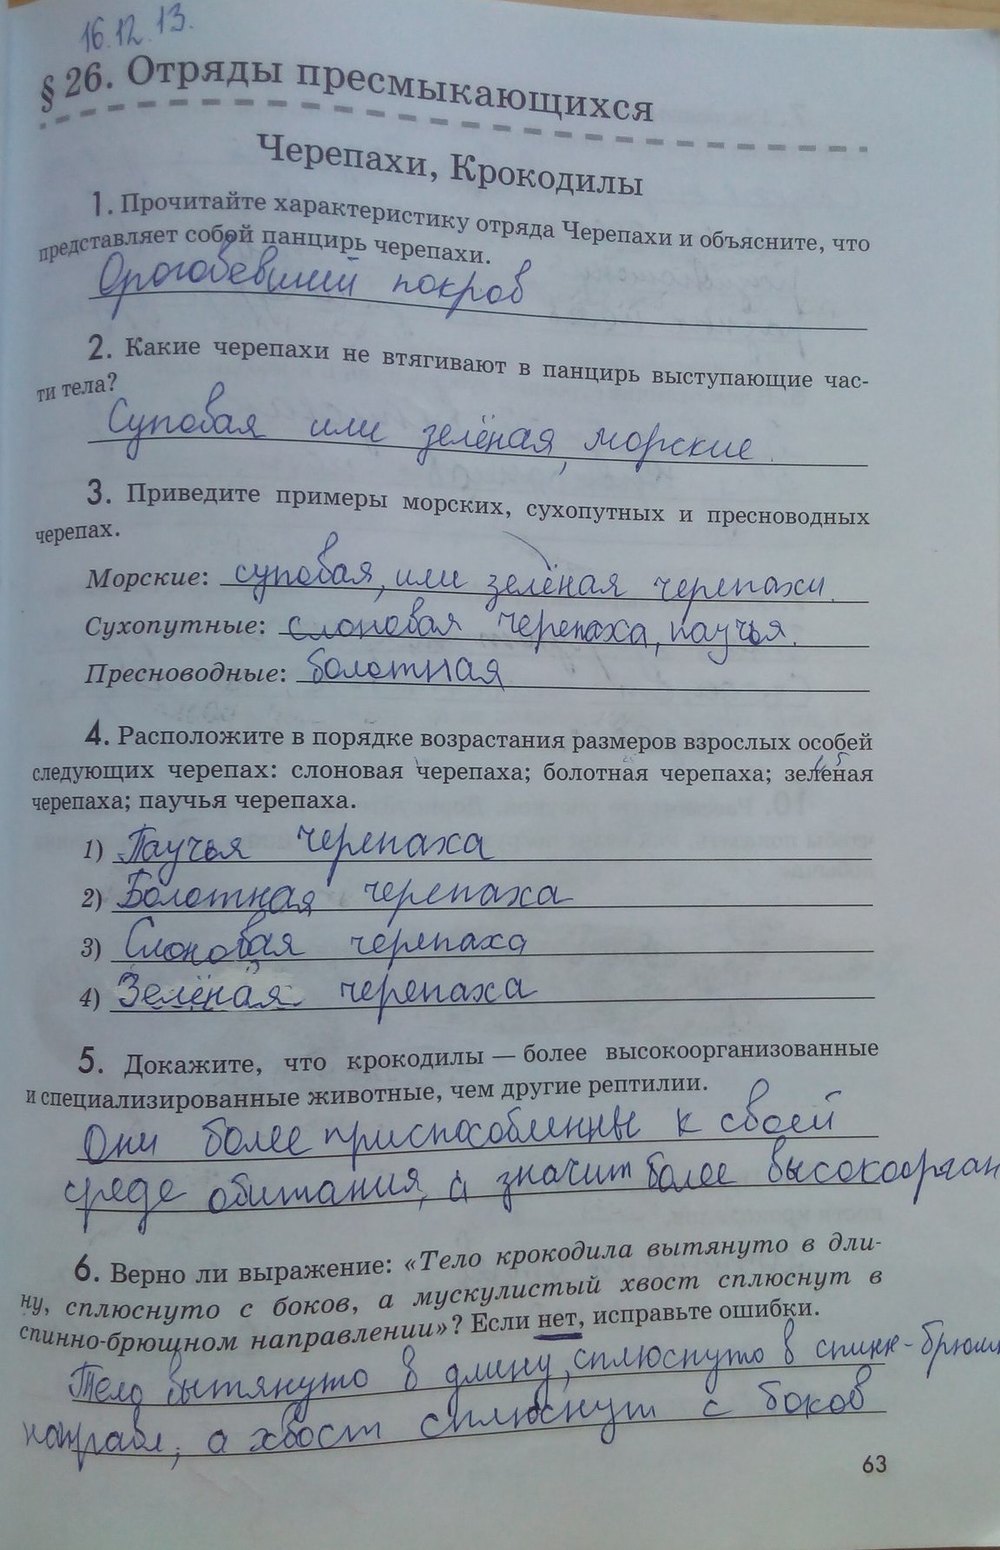 16.12.13.
§ 26. Отряды пресмыкающихся
Черепахи, Крокодилы
1. Прочитайте характеристику отряда Черепахи и объясните, что
представляет собой панцирь черепахи.
Ороговевший покров
2. Какие черепахи не втягивают в панцирь выступающие час-
ти тела?
Суповая или зелёная, морские.
3. Приведите примеры морских, сухопутных и пресноводных
черепах.
Морские: суповая, или зелёная черепахи.
Сухопутные: слоновая черепаха, паучья.
Пресноводные: болотная
4. Расположите в порядке возрастания размеров взрослых особей
следующих черепах: слоновая черепаха; болотная черепаха; зеленая
черепаха; паучья черепаха.
1) Паучья черепаха
2) Болотная черепаха
3) Слоновая черепаха
4) Зелёная черепаха
5. Докажите, что крокодилы — более высокоорганизованные
и специализированные животные, чем другие рептилии.
Они более приспособленны к своей
среде обитания, а значит более высокоорган
6. Верно ли выражение: «Тело крокодила вытянуто в дли-
ну, сплюснуто с боков, а мускулистый хвост сплюснут в
спинно-брюшном направлении»? Если нет, исправьте ошибки.
Тело вытянуто в длину, сплюснуто в спинн-брюшн
направл, а хвост сплюснут с боков
63